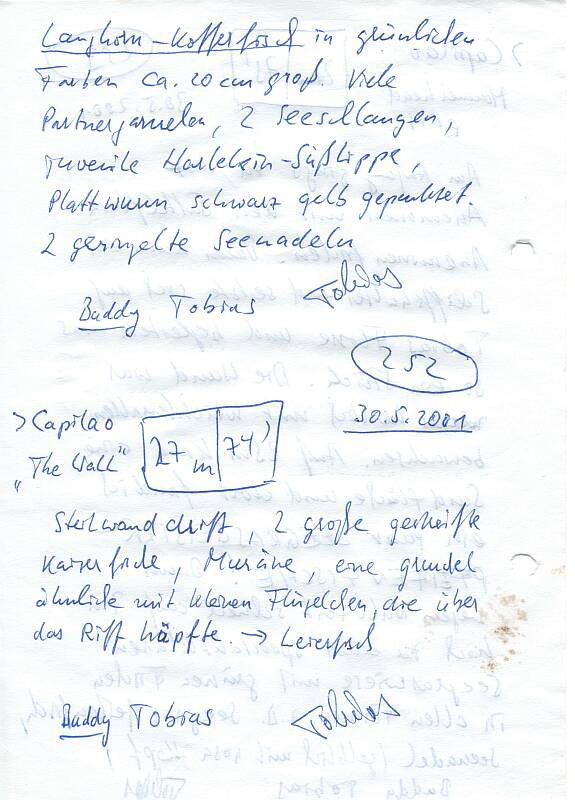 Langhorn-Kofferfisch in grünlichen
Farben ca. 20cm groß. Viele
Partnergarnelen, 2 Seeschlangen,
juvenile Harlekin-Süßlippe,
Plattwurm schwarz gelb gepunktet.
2 geringelte Seenadeln
Buddy Tobias Tobias
252
30.5.2001
> Capilao
"The Wall" 27m 74'
Steilwand drift, 2 große gestreifte
Kaiserfische, Muräne, eine grundel
ähnliche mit kleinen Flügelchen, die über
das Riff hüpfte. → Leierfisch
Buddy Tobias Tobias